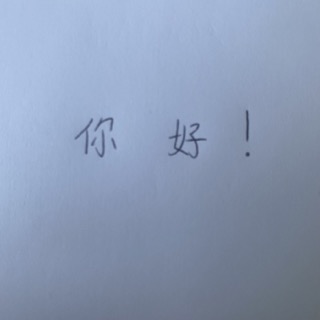 你好！